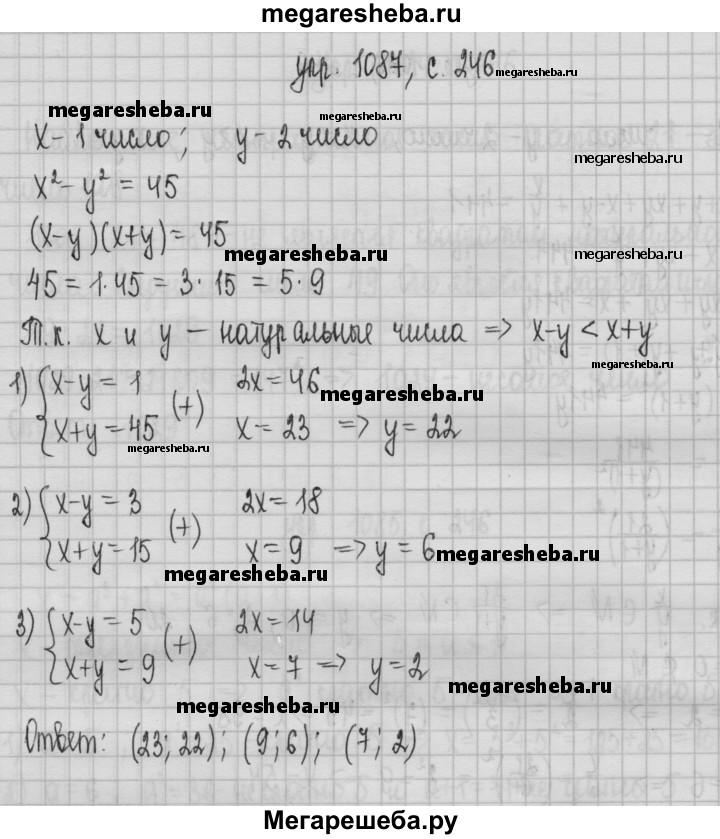 megaresheba.ru
упр. 1087, с. 246
megaresheba.ru
megaresheba.ru
x - 1 число; y - 2 число
megaresheba.ru
x² - y² = 45
(x-y)(x+y) = 45
megaresheba.ru
megaresheba.ru
45 = 1·45 = 3·15 = 5·9
Т.к. x и y — натуральные числа => x-y < x+y
megaresheba.ru
1) { x-y = 1 (+) 2x = 46
megaresheba.ru
x+y = 45 x = 23 => y = 22
megaresheba.ru
megaresheba.ru
2) { x-y = 3 (+) 2x = 18
x+y = 15 x = 9 => y = 6
megaresheba.ru
megaresheba.ru
3) { x-y = 5 (+) 2x = 14
x+y = 9 x = 7 => y = 2
megaresheba.ru
megaresheba.ru
Ответ: (23; 22); (9; 6); (7; 2)
Мегарешеба.ру